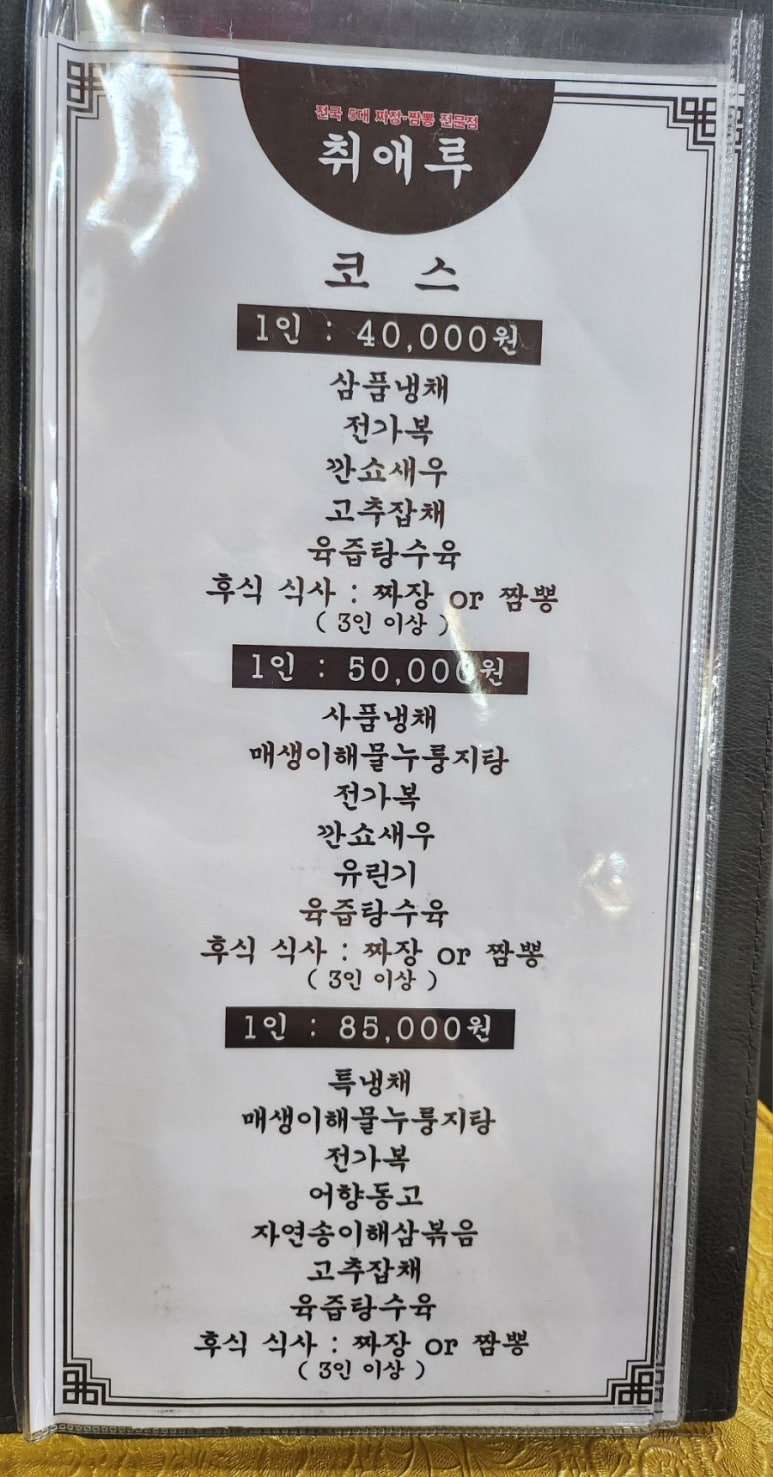 전국 5대 짜장·짬뽕 전문점
취애루
코 스
1인 : 40,000원
삼품냉채
전가복
깐쇼새우
고추잡채
육즙탕수육
후식 식사 : 짜장 or 짬뽕
( 3인 이상 )
1인 : 50,000원
사품냉채
매생이해물누룽지탕
전가복
깐쇼새우
유린기
육즙탕수육
후식 식사 : 짜장 or 짬뽕
( 3인 이상 )
1인 : 85,000원
특냉채
매생이해물누룽지탕
전가복
어향동고
자연송이해삼볶음
고추잡채
육즙탕수육
후식 식사 : 짜장 or 짬뽕
( 3인 이상 )